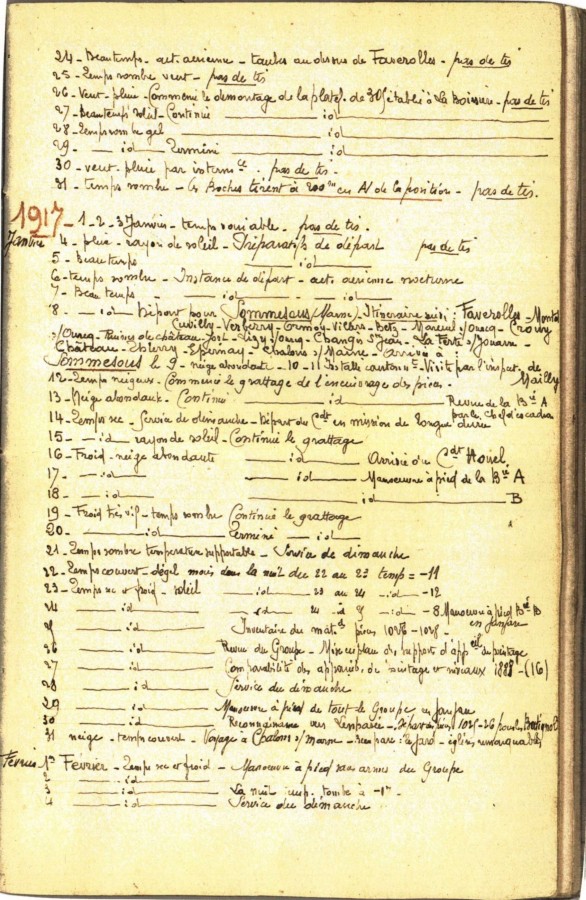 24 - Beau temps - act. aerienne - taubes au dessus de Faverolles - pas de tis
25 - Temps sombre vent - pas de tis
26 - Vent - pluie - Commencé le démontage de la platef. de 305 établie à La Boissière - pas de tis
27 - Beau temps soleil - Continué id
28 - Temps sombre gel id
29 - id Terminé id
30 - vent - pluie par interm ce pas de tis -
31 - temps sombre - les Boches tirent à 200m en AV de la position - pas de tis.
1917 - 1 - 2 - 3 Janvier - temps variable - pas de tis.
Janvier 4 - pluie - rayon de soleil - Préparatifs de départ pas de tis
5 - Beau temps id
6 - temps sombre - Instance de départ - act. aerienne nocturne
7 - Beau temps - id - id - id
8 - id - Départ pour Sommesous (Marne) - Itinéraire suivi : Faverolles - Montd
Cuvilly - Verberry - Ormoy-Villers - Betz - Mareuil s/ourcq - Crouy
s/Ourcq - Ruines du château - Lizy s/ourcq - Changis St Jean - La Ferté s/Jouarre -
Château-Thierry - Epernay - Chalons s/Marne - arrivée à :
Sommesous le 9 - neige abondante - 10 - 11 Installé cantonnt - Visite par l'inspect. de Mailly
12 - Temps neigeux - Commencé le grattage de l'encuivrage des pièces -
13 - Neige abondante - Continué id Revue de la Bie A
par le Chef d'escadron
14 - Temps sec - Service de dimanche - Départ du Cdt en mission de longue durée
15 - id rayon de soleil - Continué le grattage
16 - Froid - neige abondante id Arrivée du Cdt Houel
17 - id id Manoeuvre à pied de la Bie A
18 - id id B
19 - Froid très vif - temps sombre Continué le grattage
20 - id Terminé - id
21 - Temps sombre temperature supportable - Service de dimanche
22 - Temps couvert - dégel mais dans la nuit du 22 au 23 temp = -11
23 - Temps sec et froid - soleil id 23 au 24 - id - 12
24 id id 24 à 25 - id - 8 Manoeuvre à pied Bie B
25 id Inventaire du matel pièces 1026 - 1028 - en
26 id Revue du Groupe - Mise en place des support d'appeil de pointage
27 id Comparabilité des appareils de pointage et niveaux 1888 - (16)
28 id Service du dimanche
29 id Manoeuvre à pied de tout le Groupe en
30 id Reconnaissance vers
31 neige - temps couvert - Voyage à Chalons s/marne - le Jard - églises remarquables
Février 1er Février - Temps sec et froid - Manoeuvre à pied sans armes du Groupe
2 id
3 id La nuit temp. tombe à -17 -
4 id Service du dimanche